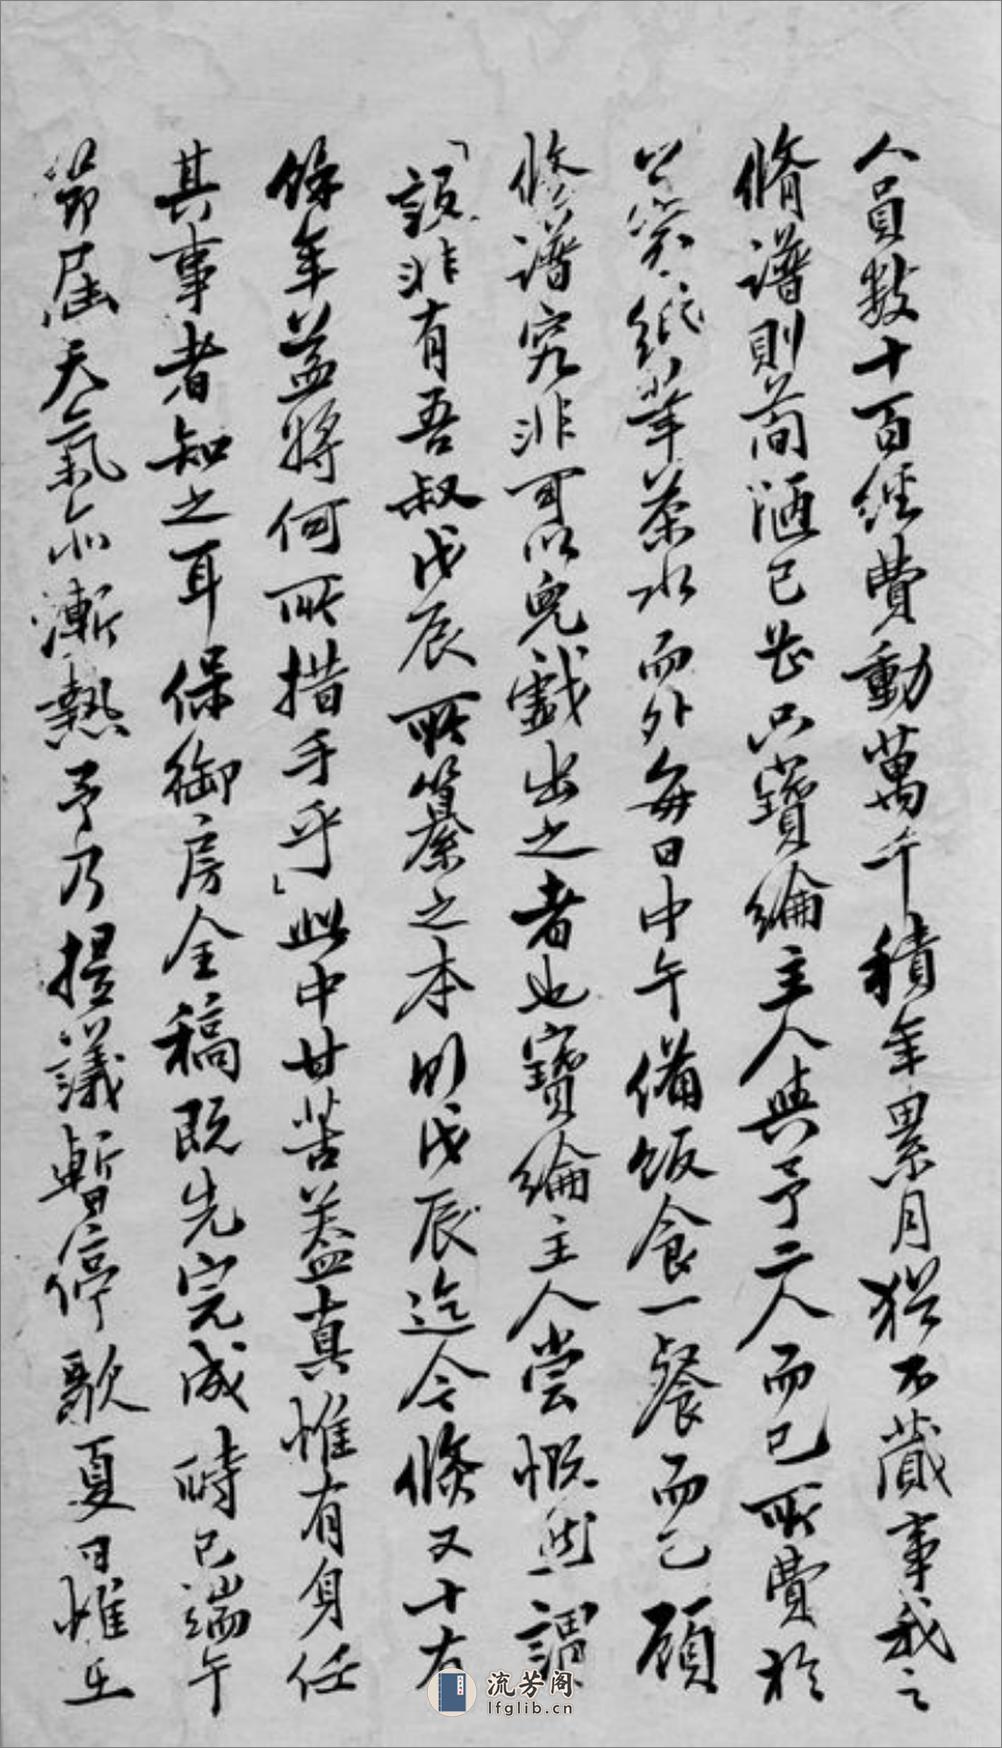 人員數十百經費動萬千積年累月猶不蕆事我之
脩譜則简陋已甚只寶綸主人與予二人而已所費於
紙筆茶水而外每日中午備飯食一餐而已顧
修譜究非可以兒戲出之者也寶綸主人嘗慨然謂
「設非有吾叔戊辰所纂之本則戊辰迄今倏又十有
餘年益將何所措手乎」此中甘苦蓋真惟有身任
其事者知之耳保御房全稿既先完成時已端午
節届天氣亦漸熱予乃提議暫停歇夏日惟在
流芳阁
lfglib.cn